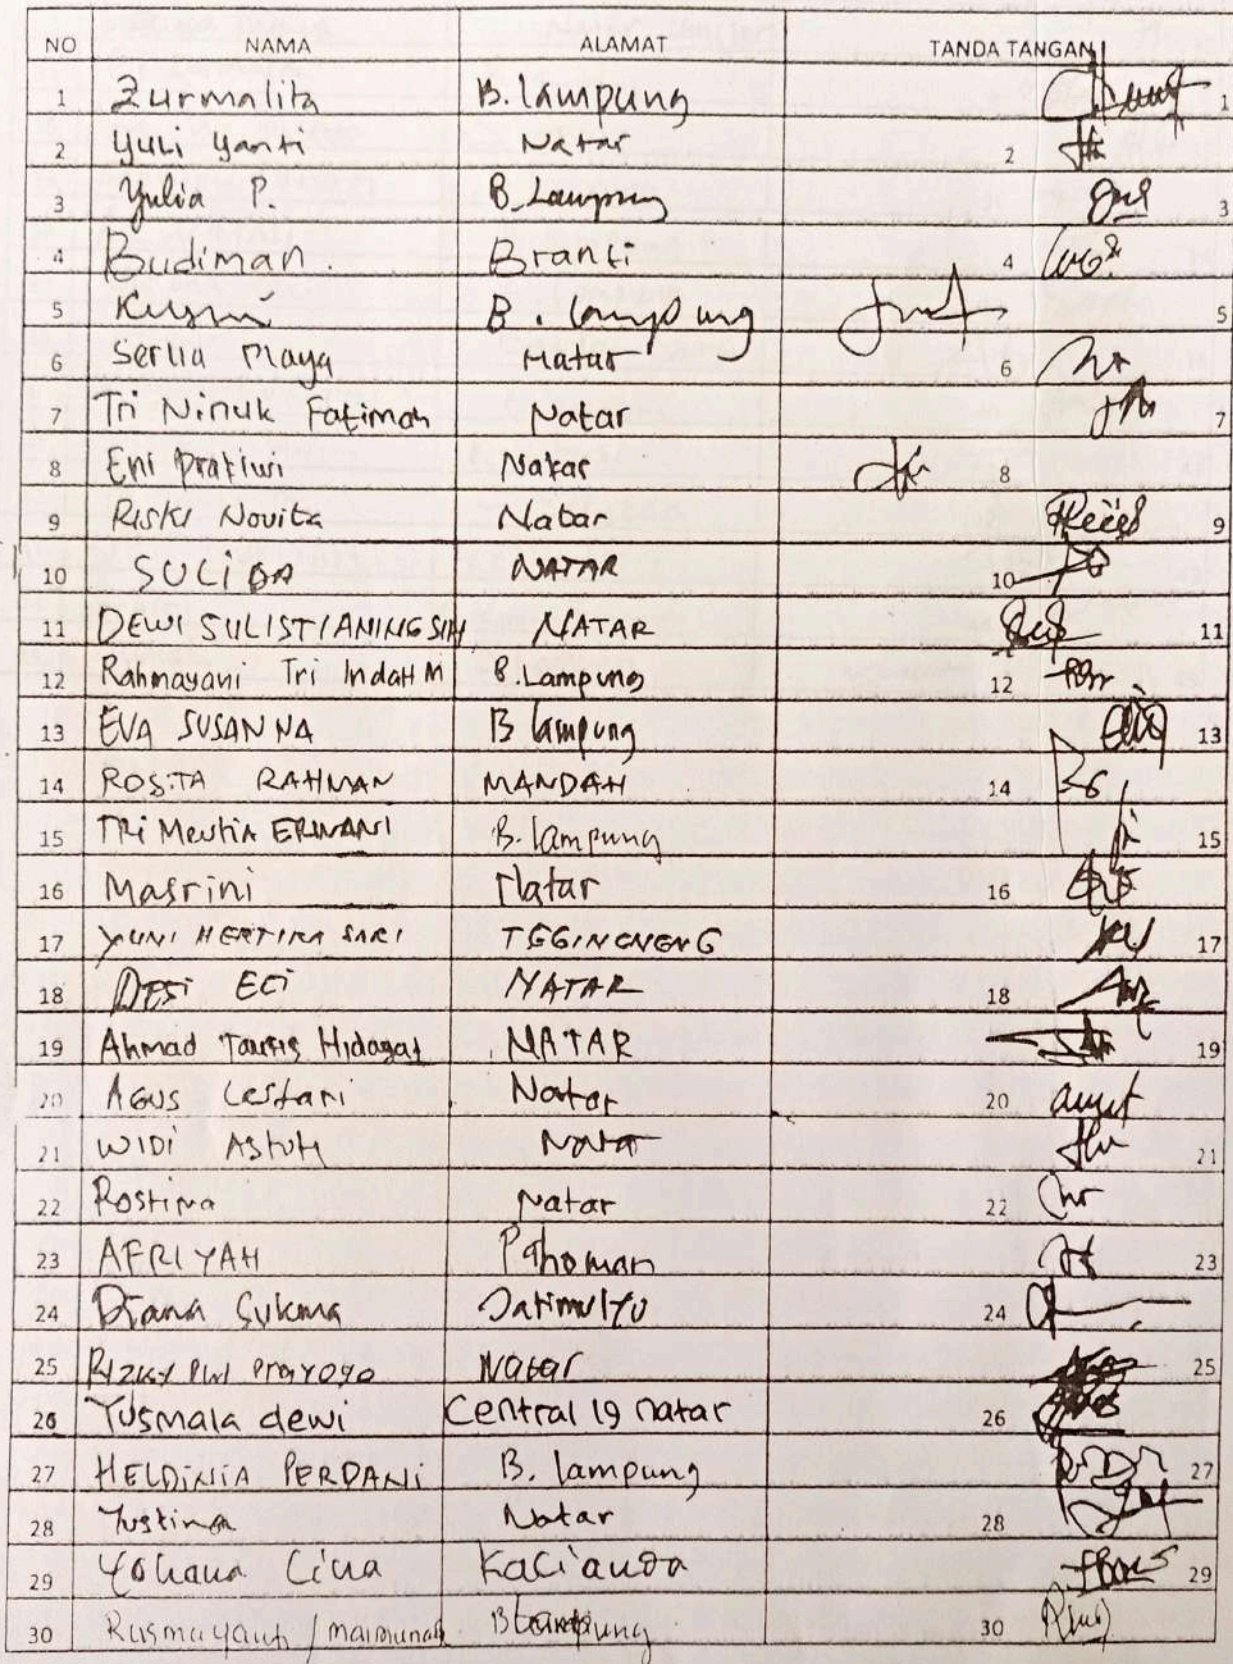 NO NAMA ALAMAT TANDA TANGAN
1 Zurmalita B. lampung 1
2 Yuli Yanti Natar 2
3 Yulia P. B. Lampung 3
4 Budiman. Branti 4
5 B. lampung 5
6 Serlia Maya Natar 6
7 Tri Ninuk Fatimah Natar 7
8 Eni Pratiwi Natar 8
9 Riski Novita Natar 9
10 SULiDA NATAR 10
11 DEWI SULISTIANINGSIH NATAR 11
12 Rahmayani Tri IndaH M B. Lampung 12
13 EVA SUSANNA B lampung 13
14 ROSiTA RAHMAN MANDAH 14
15 TRi Meutia ERWANI B. lampung 15
16 Masrini Natar 16
17 YUNI HERTIKA SARI TEGINENENG 17
18 DESi ECi NATAR 18
19 Ahmad Taufiq Hidayat NATAR 19
20 AGUS Lestari Natar 20
21 WIDi Astuti Natar 21
22 Rostina Natar 22
23 AFRIYAH Pahoman 23
24 Diana Sukma Jatimulyo 24
25 Rizky Dwi Prayogo Natar 25
26 Yusmala dewi Central 19 natar 26
27 HELDiNIA PERDANi B. lampung 27
28 Yustina Natar 28
29 Yohana Kalianda 29
30 Rusmayanti / maimunah B Lampung 30